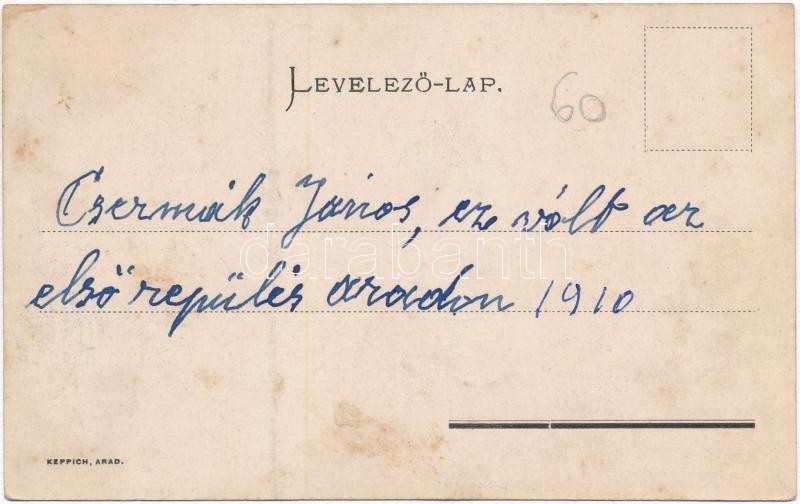 LEVELEZŐ-LAP.
60
Csermák János, ez vólt az
darabanth
első repülés aradon 1910
KEPPICH, ARAD.